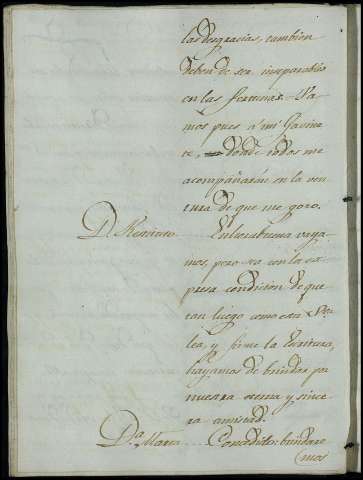 las desgracias, tambien
deben de ser inseparables
en las fortunas. Va-
mos pues à mi Gavine-
te, donde todos me
acompañarán en la ven-
tura de que me gozo.
D. Enorabuena vaya-
mos, pero sea con la ex-
presa condicion de que
tan luego como este
lea, y firme la Escritura,
hayamos de brindar por
nuestra eterna y since-
ra amistad.
Dª Maria Concedido: brindare-
mos